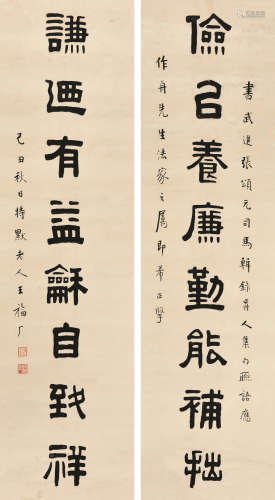 書武進張頌元司馬人集聯語應
儉㠯養廉勤能補拙
作舟先生法家之屬即希正擘
謙迺有益龢自致祥
己丑秋日持默老人王福厂